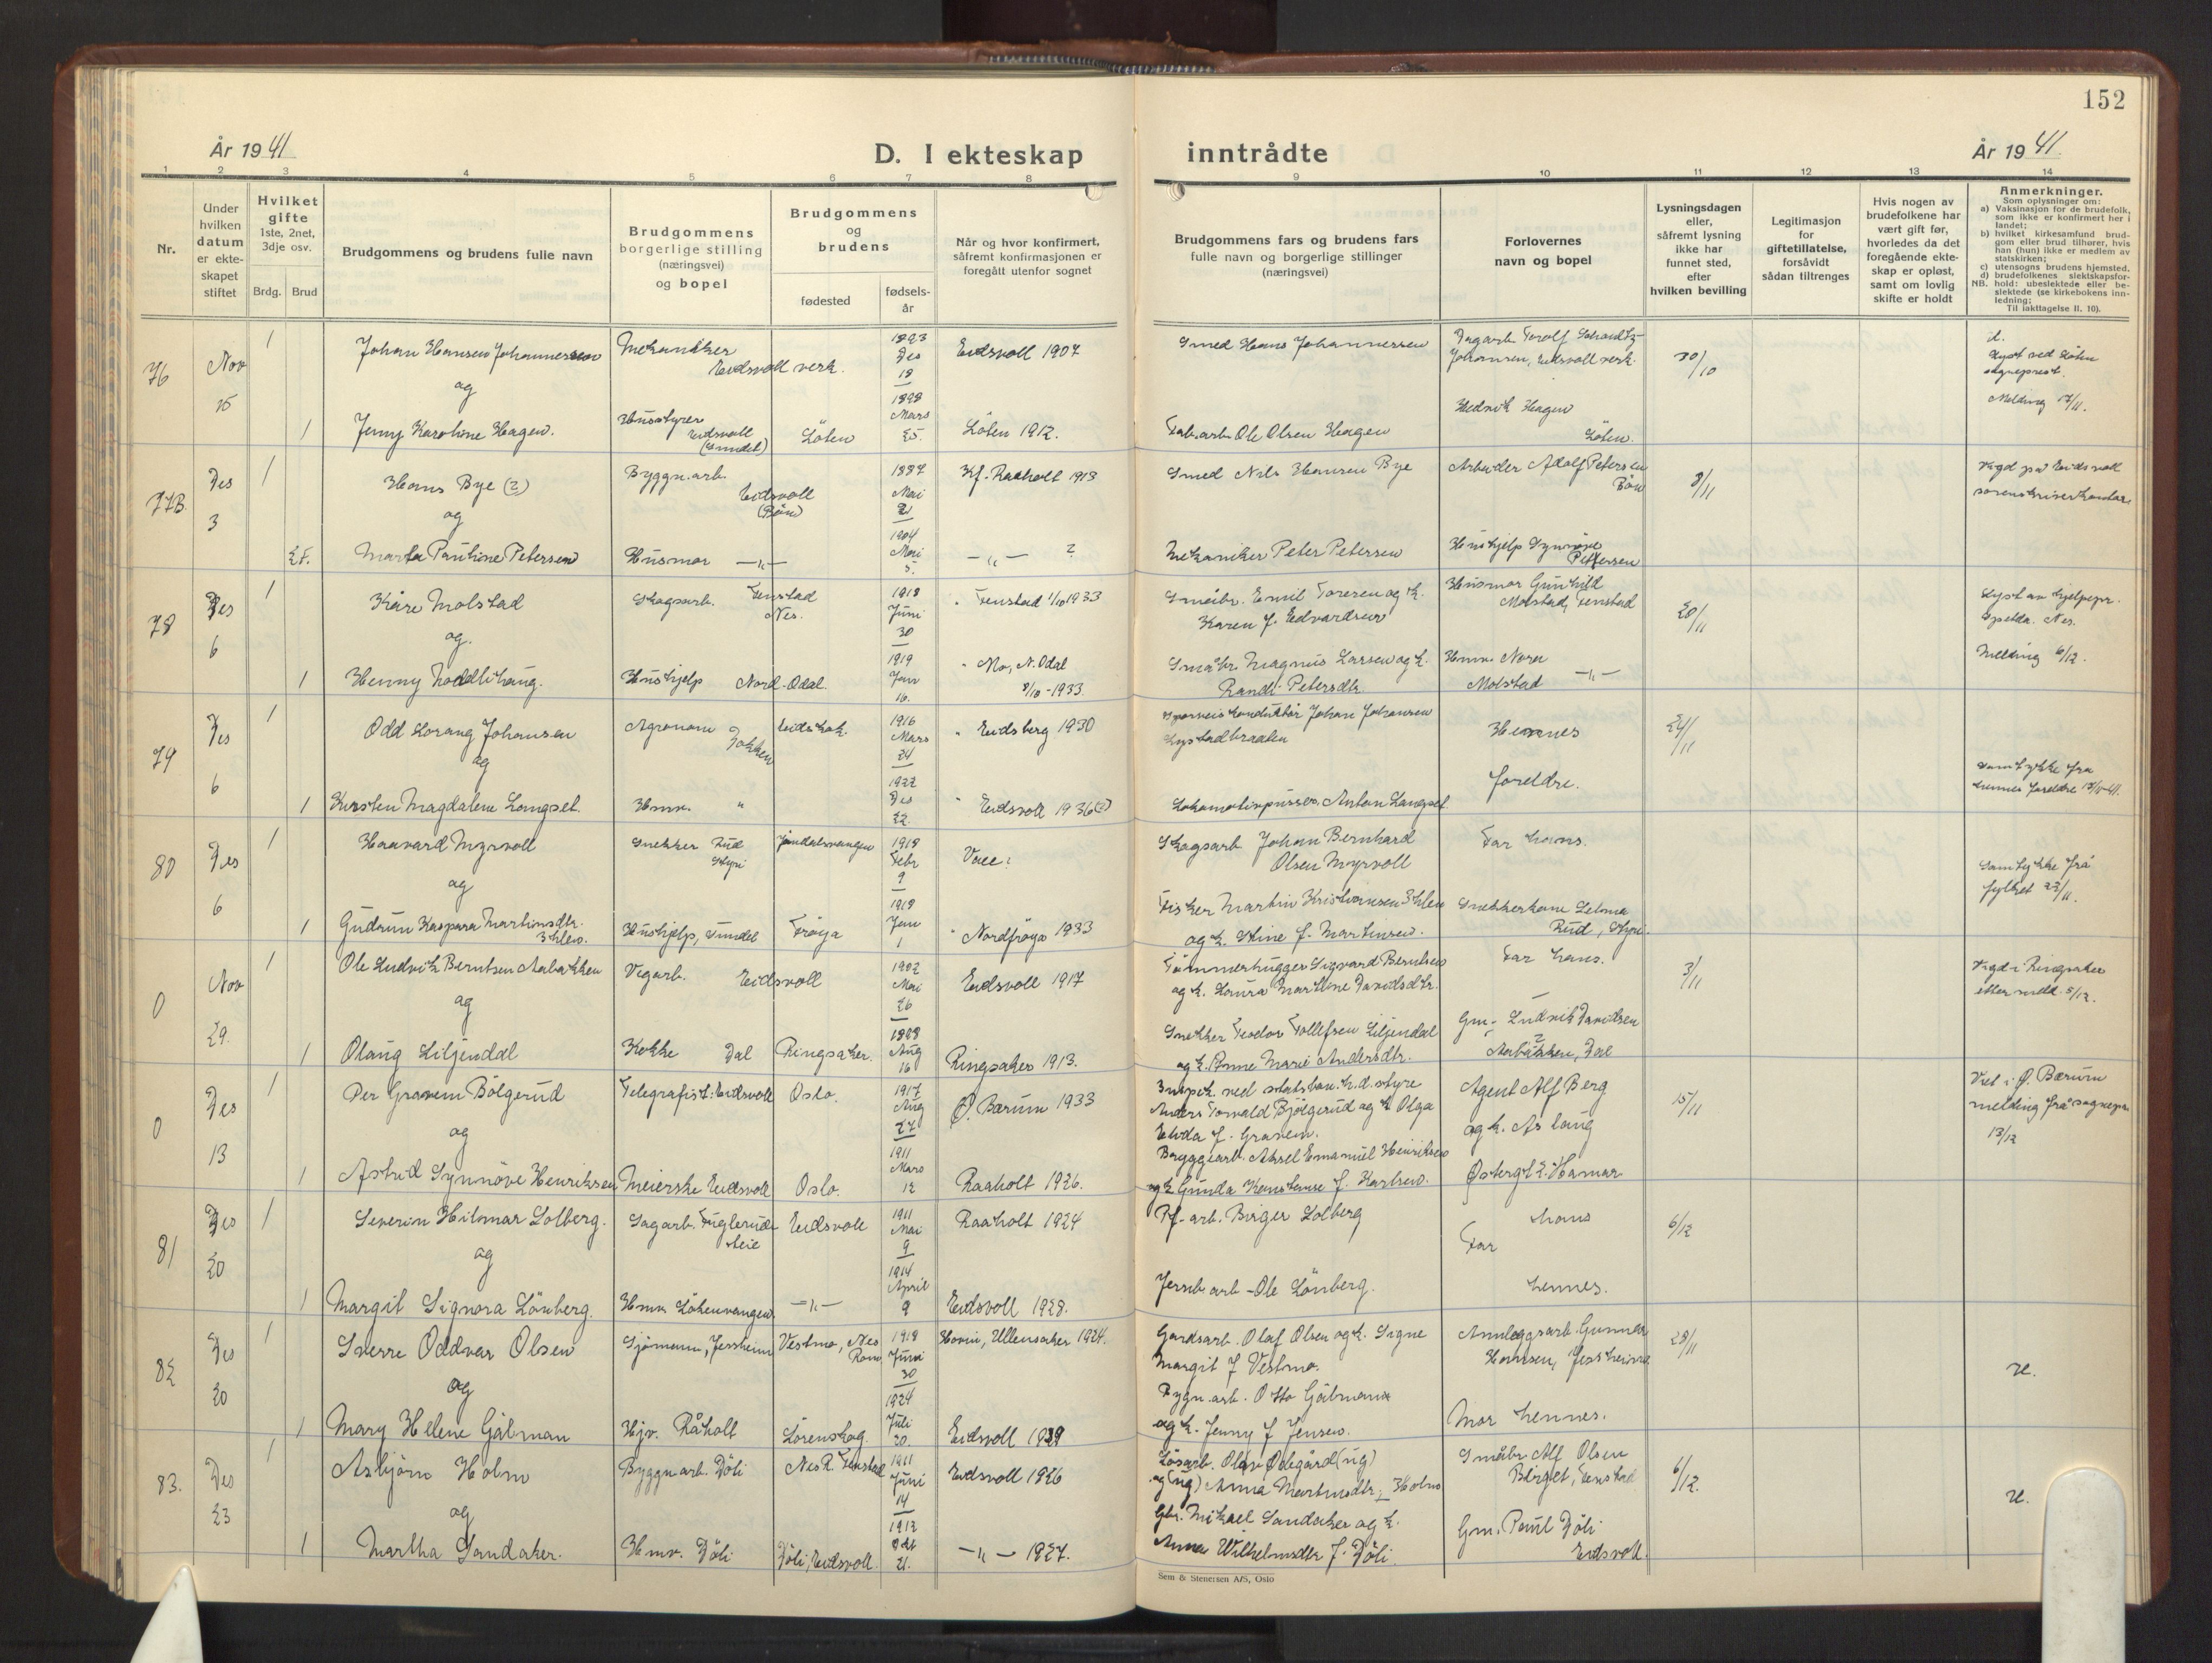 152
År 1941
D. I ekteskap
inntrådte
År 1941.
1 2 3 4 5 6 7 8 9 10 11 12 13 14
Nr.
Under hvilken datum er ekteskapet stiftet
Hvilket gifte
1ste, 2net, 3dje osv.
Brdg. Brud
Brudgommens og brudens fulle navn
Brudgommens borgerlige stilling (næringsvei) og bopel
Brudgommens og brudens
fødested
fødselsår
Når og hvor konfirmert, såfremt konfirmasjonen er foregått utenfor sognet
Brudgommens fars og brudens fars fulle navn og borgerlige stillinger (næringsvei)
Forlovernes navn og bopel
Lysningsdagen eller, såfremt lysning ikke har funnet sted, efter hvilken bevilling
Legitimasjon for giftetillatelse, forsåvidt sådan tiltrenges
Hvis nogen av brudefolkene har vært gift før, hvorledes da det foregående ekteskap er opløst, samt om lovlig skifte er holdt
Anmerkninger.
Som oplysninger om:
a) Vaksinasjon for de brudefolk, som ikke er konfirmert her i landet;
b) hvilket kirkesamfund brudgom eller brud tilhører, hvis han (hun) ikke er medlem av statskirken;
c) utensogns brudens hjemsted.
d) brudefolkenes slektskapsforhold: ubeslektede eller beslektede (se kirkebokens innledning;
NB.
Til iakttagelse II. 10).
76 Nov 15 1 Johan Hansen Johannessen Mekaniker Eidsvoll verk. 1893 Des 18 Eidsvoll 1907 Smed Hans Johannessen Johansen, Eidsvoll verk. 30/10 Lyst ved Löten sogneprest. Melding 17/11.
og
1 Jenny Karoline Hagen. Husstyrer Eidsvoll (Sundet) Löten 1898 Mars 25. Löten 1912. Fab.arb. Ole Olsen Hagen Hedvik Hagen Löten.
77B. Des 3 1 Hans Bye (2) Byggn.arb. Eidsvoll (Bön) 1887 Mai Kf. Raaholt 1913 Smed Nils Hansen Bye Arbeider Adolf Petersen Bön 8/11 Vigd på Eidsvoll sorenskriverkontor
og
2F. Marta Pauline Petersen Husmor —"— 1904 Mai 5. —"— ? Mekaniker Peter Petersen Hushjelp Synnöve Pettersen
78 Des 6 1 Kåre Molstad Skogsarb. Fenstad Nes. 1918 Juni 30 Fenstad 1/10 1933 Småbr. Emil Toresen og k. Karen f. Edvardsen Husmor Gunhild Molstad, Fenstad 20/11 Lyst av hjelpepr. Nes. Melding 6/12.
og.
1 Henny Noddlihaug. Hushjelp Nord-Odal. 1919 Jan 16. Mo, N. Odal 8/10-1933 Småbr. Magnus Larsen og k. Randi Petersdtr. Hmv. Nora Molstad —"—
79 Des 6 1 Odd Lorang Johansen Agronom Eidskok. 1916 Mars 24 Eidsberg 1930 Sporveiskonduktör Johan Johansen Hennes foreldre. 24/11 Samtykke fra hennes foreldre
og
1 Kirsten Magdalene Langset. Hmv. " 1922 Des 22. Eidsvoll 1936(?) Lokomotivpusser Anton Langset
80 Des 6 1 Haavard Myrvoll Snekker Rud Styri 1918 Febr 9 Skogsarb. Johan Bernhard Olsen Myrvoll Far hans. Samtykke frå fylket 22/11.
og
1 Gudrun Kaspara Martinsdtr. Hushjelp, Sundet Fröya 1919 Jan 1 Nordfröya 1933 Fisker Martin Kristiansen og k. Stine f. Martinsen. Snekkerkone Selma Rud, Styri.
0 Nov 29. 1 Ole Ludvik Berntsen Aabakken Vegarb. Eidsvoll 1902 Mai 26 Eidsvoll 1917 Tömmerhugger Sigvard Berntsen og k. Laura Martine Davidsdtr. Far hans. 3/11 Vigd i Ringsaker etter meld. 5/12.
og
1 Olaug Liljendal Kokke Dal Ringsaker. 1898 Aug 16 Ringsaker 1913. Snekker Teodor Tollefsen Liljendal og k. Anne Marie Andersdtr. Gm. Ludvik Davidsen Aabakken, Dal
0 Des 13 1 Per Gravem Bölgerud Telegrafist. Eidsvoll Oslo. 1917 Aug 27 Ø. Bærum 1933 Insp.k. ved statsban.h.d.styre Anders Torvald Bjölgerud og k Olga f. Gravem. Agent Alf Berg og k. Aslaug 15/11 Viet i Ø. Bærum melding frå sognepr. 13/12
og
1 Astrid Synnöve Henriksen Meierske Eidsvoll Oslo. 1911 Mars 12 Raaholt 1926. Bryggiarb. Aksel Emanuel Henriksen og k Gunda Konstanse f. Karlsen. Østergt 2. Hamar
81 Des 20 1 Severin Hilmar Solberg. Sagarb. Eidsvoll 1911 Mai 9 Raaholt 1924 Pf-arb. Birger Solberg Far hans 6/12
og
1 Margit Signora Lönberg. Hmv. Lökenvangen —"— 1914 April 9 Eidsvoll 1928. Jernb.arb. Ole Lönberg. hennes.
82 Des 20 1 Sverre Oddvar Olsen Sjömann, Jessheim Vestmo, Nes Rom. 1918 Juni 30 Hovin, Ullensaker 1924. Gardsarb. Olaf Olsen og k. Signe Margit f Vestmo. Annleggsarb. Gunnar Hansen, Jessheim 28/11 U.
og
1 Mary Helene Gålman Hjv. Råholt Lörenskog. 1924 Juli 20. Eidsvoll 1939 Bygn.arb. Otto Gålmann og k. Jenny f Jensen. Mor hennes.
83. Des 23 1 Asbjörn Holm Byggn.arb. Döli Nes R. Fenstad 1911 Juni 14 Eidsvoll 1926 Lösarb. Olav Ödegård (ug) og (ug) Anna Martinsdtr. Holm Småbr. Alf Olsen Börget, Fenstad 6/12. U.
og
1 Martha Sandaker. Hmv. Döli Döli, Eidsvoll. 1912 Okt 21. —"— 1927. Gbr. Mikael Sandaker og k. Anna Wilhelmsdtr f. Döli. Gm. Paul Döli Eidsvoll.
Sem & Stenersen A/S, Oslo